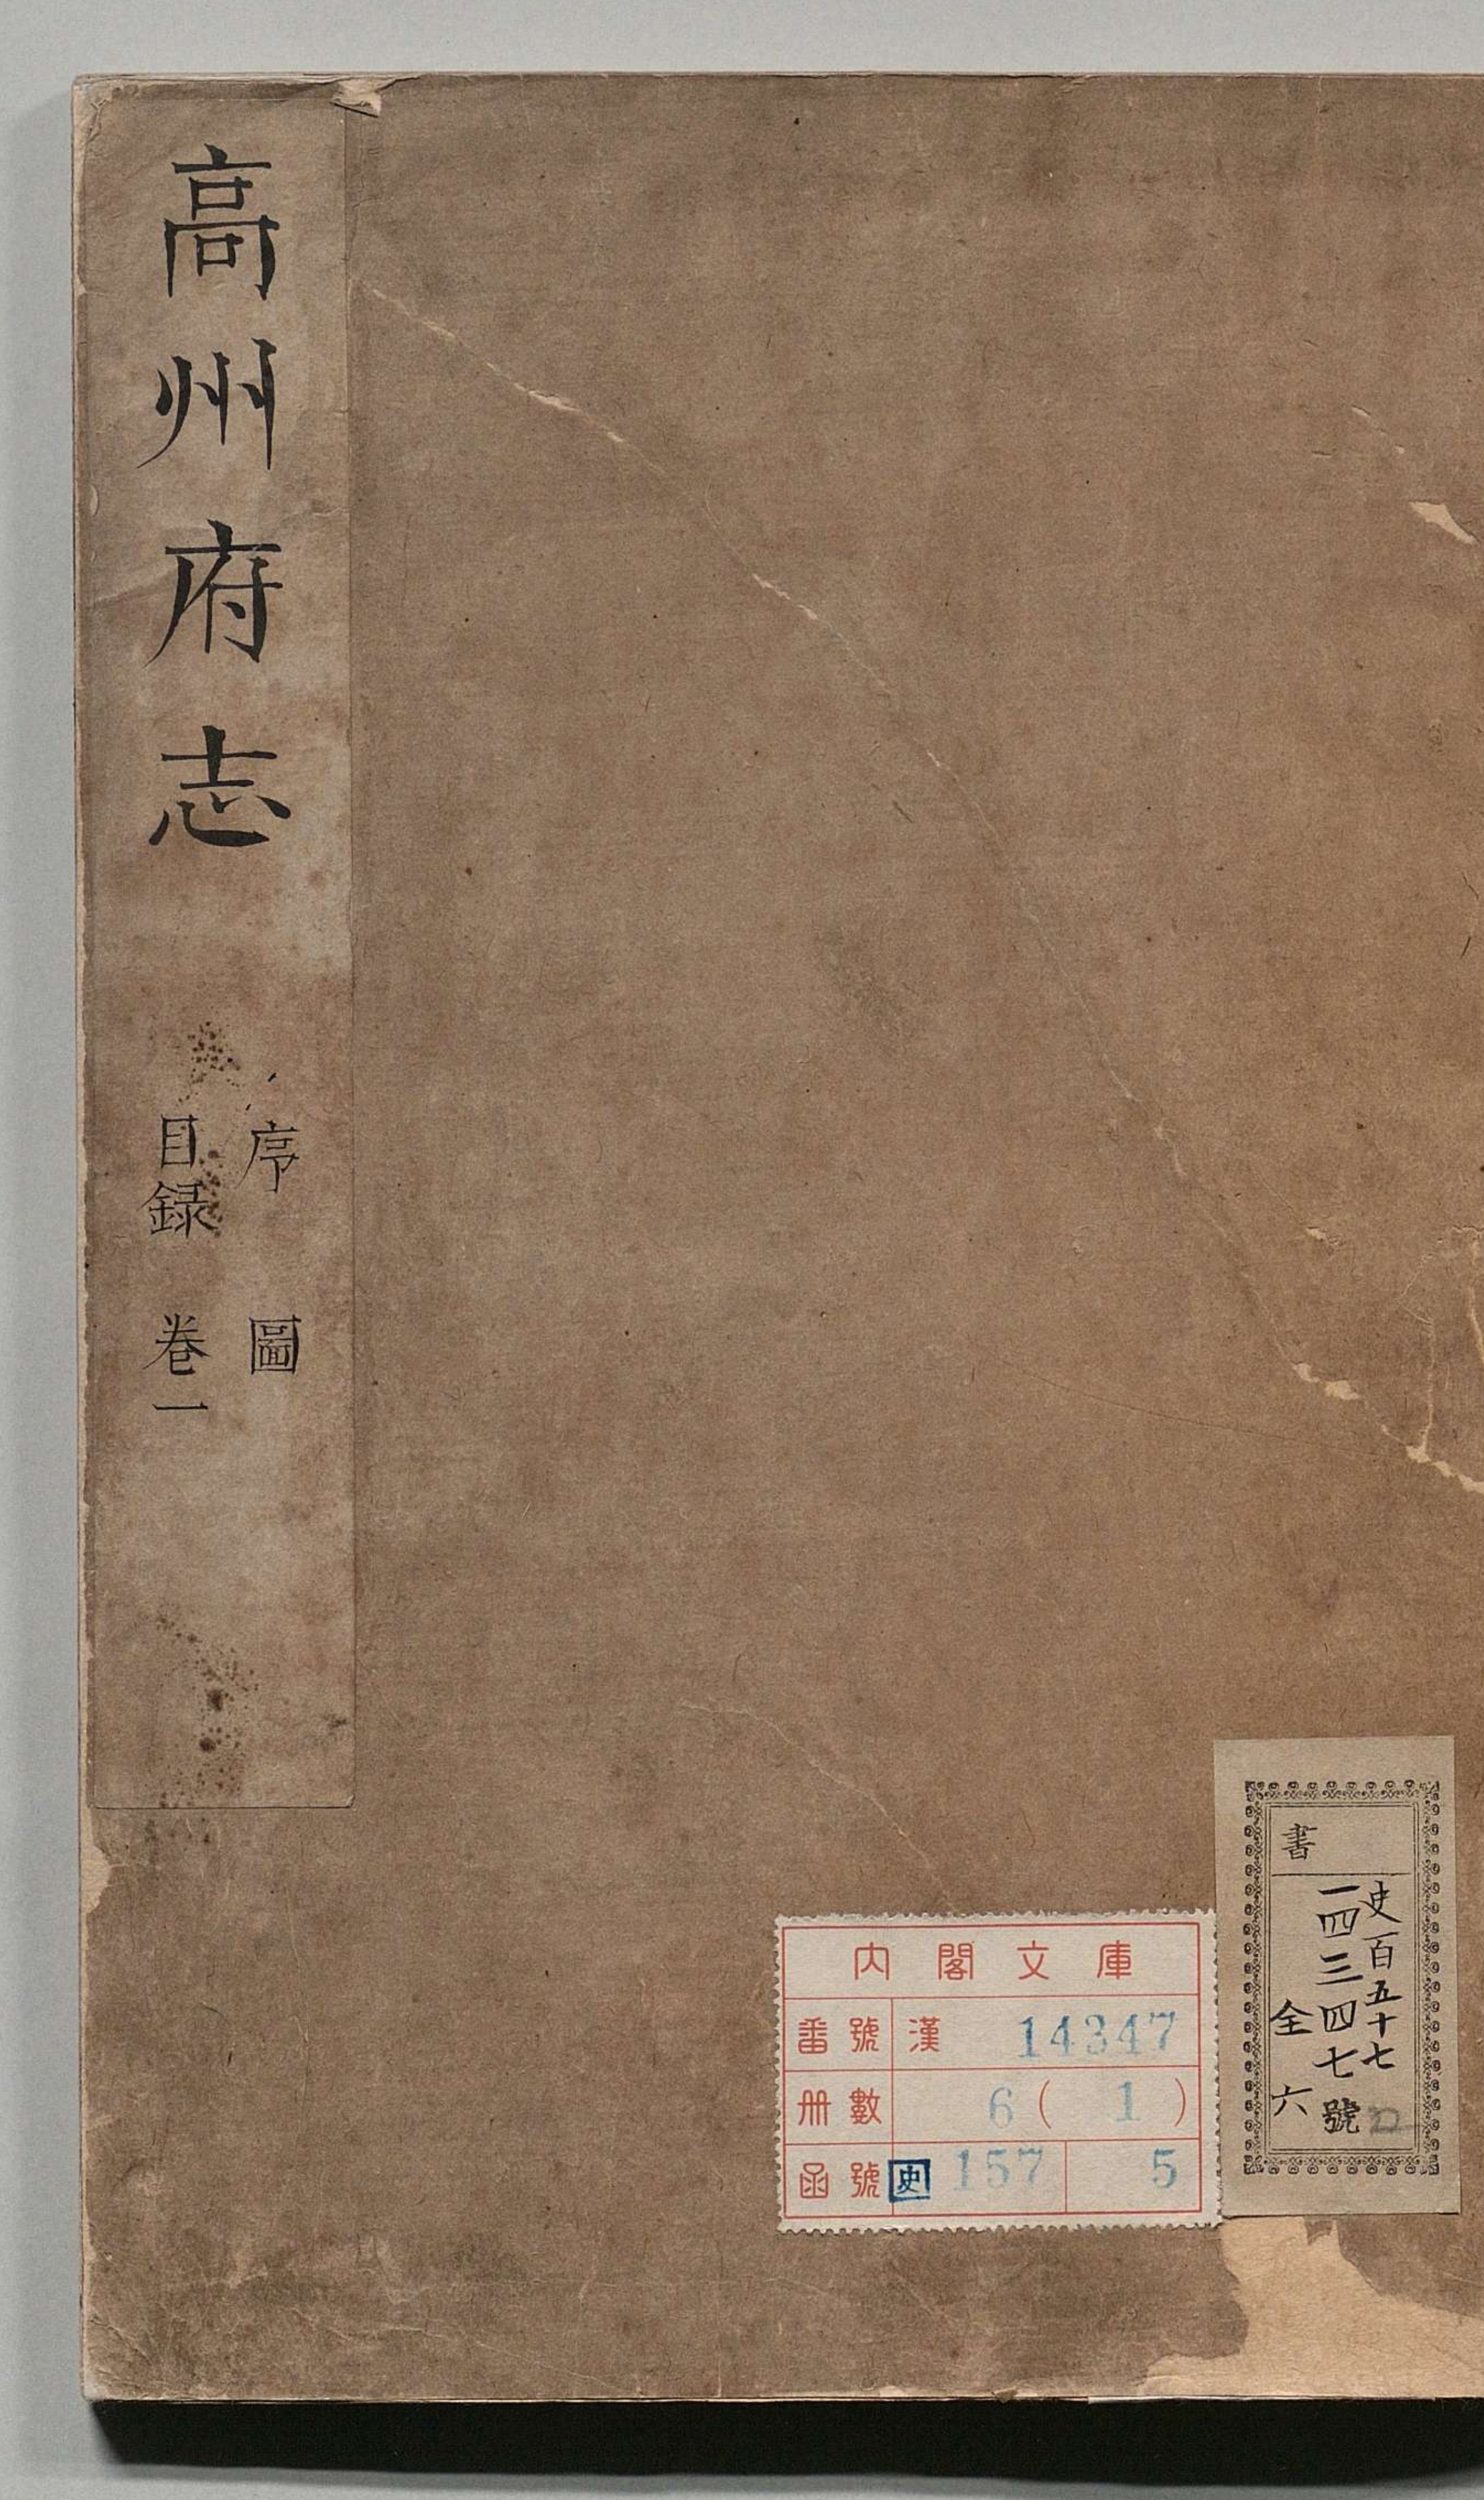 高州府志
序 圖
目録 卷一
內閣文庫
番號 漢 14347
冊數 6( 1 )
函號 史 157 5
書
史百五十七
一四三四七號
全六